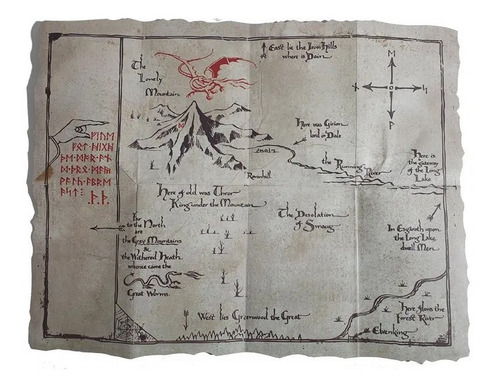 East lie the Iron Hills
where is Dain
The
Lonely
Mountain
Here was Girion
lord in Dale
Ravenhill
the Running River
Here is
the gateway
of the Long
Lake
Here of old was Thror
King under the Mountain
The Desolation
of Smaug
Far
to the North
are
the Grey Mountains
&
the Withered Heath
whence came the
Great Worms.
In Esgaroth upon
the Long Lake
dwell Men.
West lies Greenwood the Great
Here flows the
Forest River
Elvenking